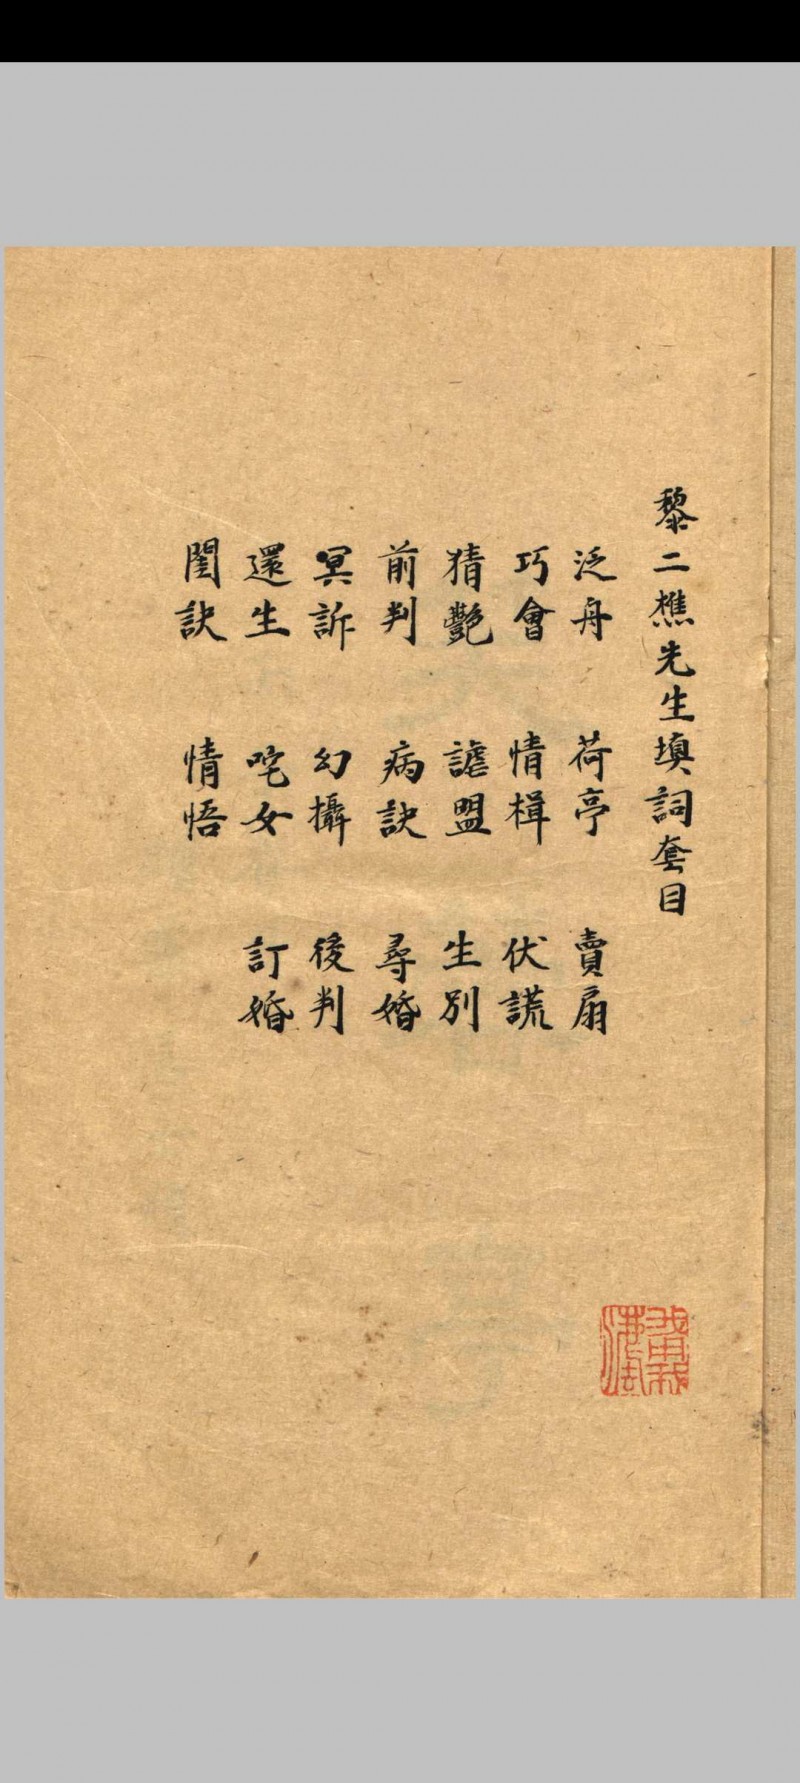 黎二樵先生填詞套目
泛舟 荷亭 賣扇
巧會 情楫 伏謊
猜艷 謔盟 生別
前判 病訣 尋婚
冥訴 幻攝 後判
還生 咤女 訂婚
閨訣 情悟